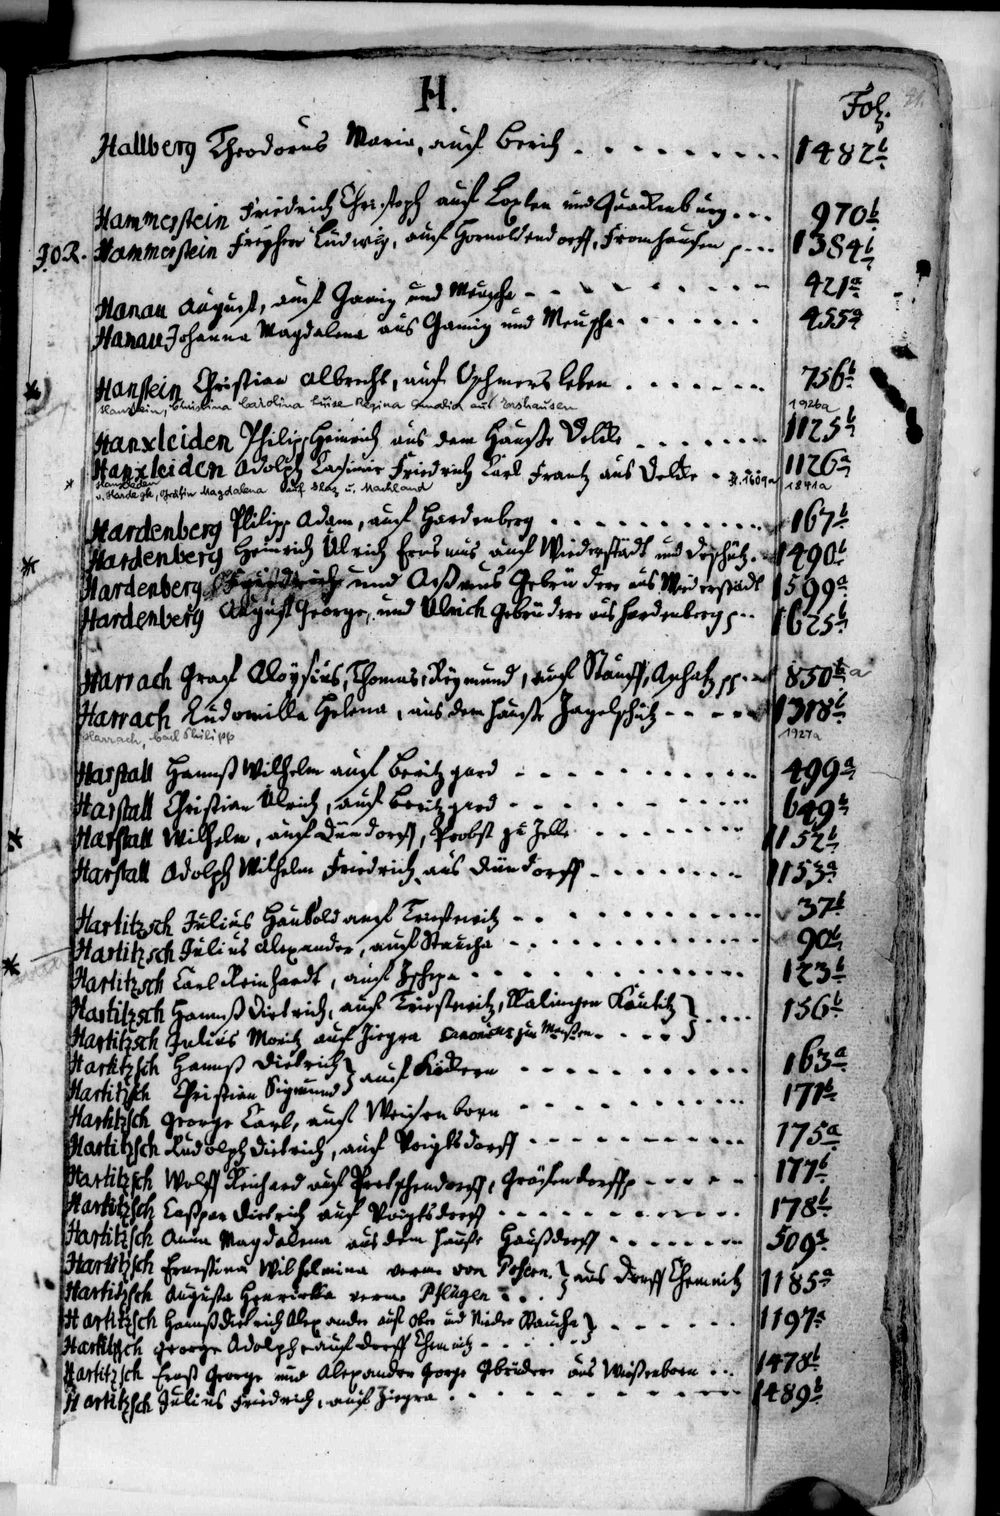 H.
Fol.
Hallberg Theodorus Maria, auf Berich 1482b
Hammerstein Friedrich Christoph auf Loxten und Quackenburg 970b
J.O.R. Hammerstein Freyherr Ludwig, auf Hornoldendorff, Fromhausen p 1384b
Hanau August, auf Ganig und Meusche 421a
Hanau Johanna Magdalena aus Ganig und Meusche 455a
Hanstein Christian Albrecht, auf Oschmersleben 756b
Hanstein, Christina Carolina Luise Regina Amalia aus Ershausen 1926a
Hanxleiden Philipp Heinrich aus dem Hauße Velde 1125b
Hanxleiden Adolph Casimir Friedrich Carl Frantz aus Velde 1609a 1126a
Hanxleden
v. Hardegk, Gräfin Magdalena auf Glaz u. Machland 1841a
Hardenberg Philipp Adam, auf Hardenberg 167b
Hardenberg Heinrich Ulrich Erasmus auf Wiederstädt und 1490b
Hardenberg Friedrich und Aßmus Gebrüdere aus Wiederstädt 1599a
Hardenberg August George, und Ulrich Gebrüdere aus Hardenberg p 1625b
Harrach Graf Aloysius, Thomas, Reymund, auf Stauff, Aschatz pp 850b a
Harrach Ludomilla Helena, aus dem Hauße Jagelschütz 1318b
Harrach, Carl Philipp 1927a
Harstall Hannß Wilhelm auf Beritzgard 499a
Harstall Christian Ulrich, auf Beritzgard 649b
Harstall Wilhelm, auf Dündorff, Probst zu Zelle 1152b
Harstall Adolph Wilhelm Friedrich aus Dündorff 1153a
Hartitzsch Julius Haubold auf Triestewitz 37b
Hartitzsch Julius Alexander, auf Staucha 90b
Hartitzsch Carl Reinhardt, auf Zschepa 123b
Hartitzsch Hannß Dietrich, auf Triestewitz, Kälingen Käutitz } 156b
Hartitzsch Julius Moritz auf Ziegra Canonicus zu Meißen }
Hartitzsch Hannß Dietrich } auf Ködern 163a
Hartitzsch Christian Sigmund }
Hartitzsch George Carl, auf Weisenborn 171b
Hartitzsch Rudolph Dietrich, auf Voigtsdorff 175a
Hartitzsch Wolff Reichard auf Pretzschendorff, Gräfendorff p 177b
Hartitzsch Caßpar Dietrich auf Voigtsdorff 178b
Hartitzsch Anna Magdalena aus dem Hauße Haußdorff 509a
Hartitzsch Ernestina Wilhelmina verm. von Posern. } aus Dorff Chemnitz 1185a
Hartitzsch Augusta Henrietta verm. Pflugen }
Hartitzsch Hannß Dietrich Alexander auf Ober und Nieder Staucha } 1197a
Hartitzsch George Adolph auf Dorff Chemnitz
Hartitzsch Ernst George und Alexander George Gebrüdere aus Weißenborn 1478b
Hartitzsch Julius Friedrich, auf Ziegra 1489b